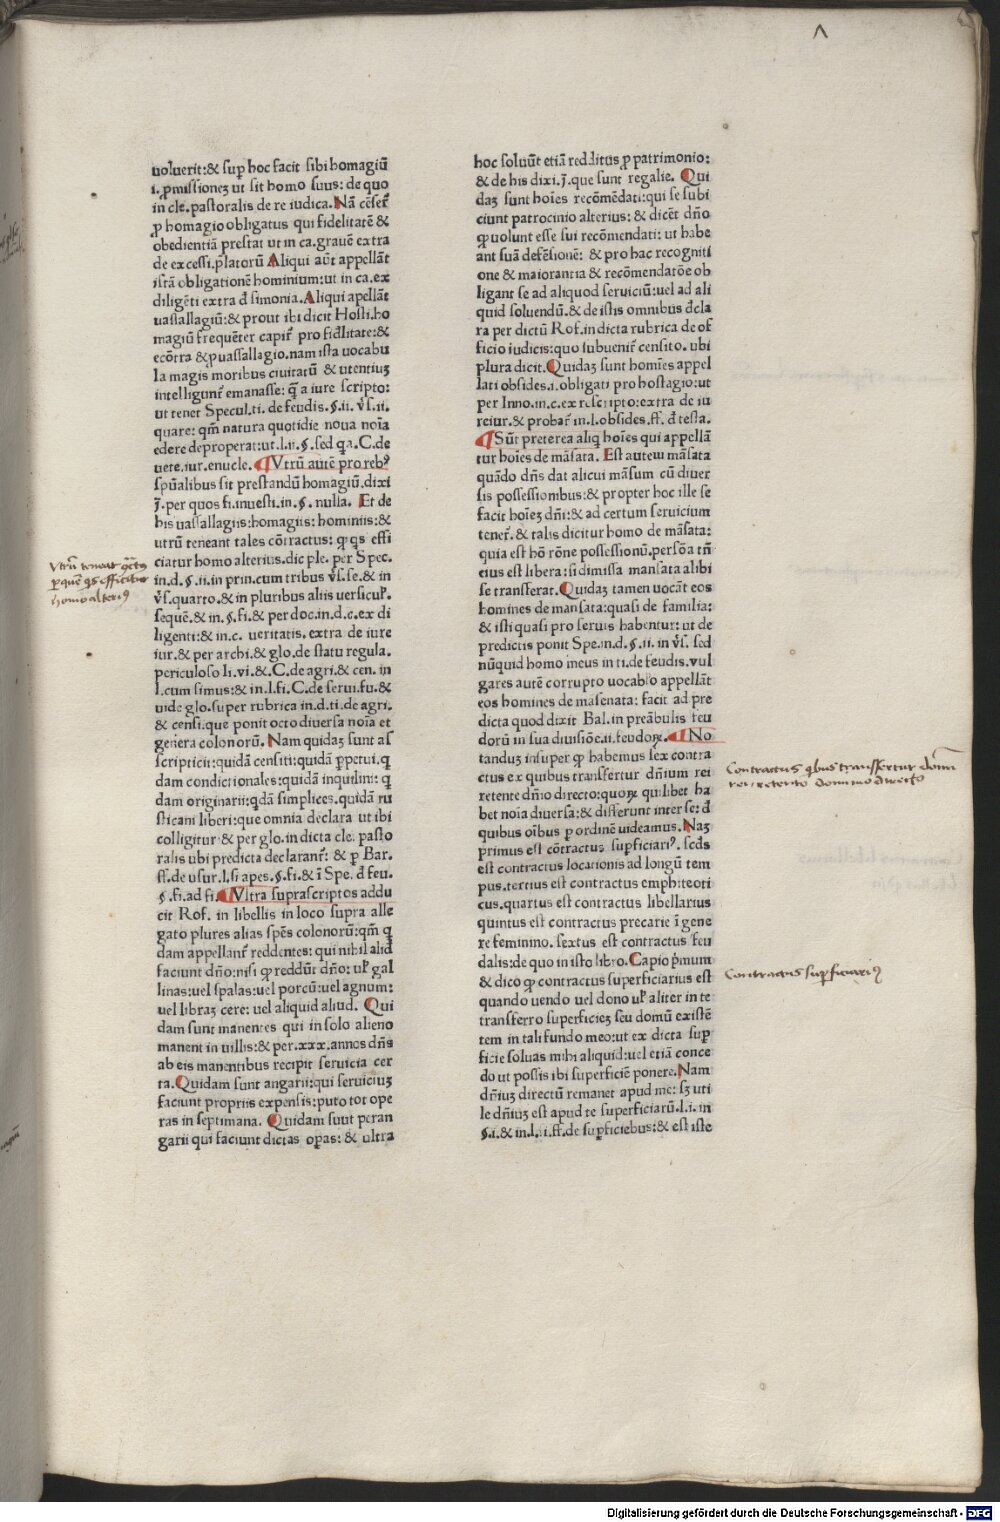 uoluerit:& suꝑ hoc facit sibi homagiū
i. ꝓmissionez ut sit homo suus: de quo
in cle. pastoralis de re iudica. Nā cēset᷑
ꝑ homagio obligatus qui fidelitatē &
obedientiā prestat ut in ca. grauē extra
de excessi. p̄latorū Aliqui aūt appellāt
istā obligationē hominium: ut in ca. ex
diligēti extra d̄ simonia. Aliqui apellāt
uassallagiū: & prout ibi dicit Hosti. ho
magiū frequēter capit᷑ pro fidlitate: &
ecōtra & ꝓ uassallagio. nam ista uocabu
la magis moribus ciuitatū & utentiuz
intelligunt᷑ emanasse: q̄ a iure scripto:
ut tenet Specul. ti. de feudis. §. ii. v̄s. ii.
quare: qm̄ natura quotidie noua noīa
edere deproperat: ut. l. ii. §. sed qa. C. de
uete. iur. enucle. ¶ Vtrū autē pro rebꝰ
spūalibus sit prestandū homagiū. dixi
j̄. per quos fi. inuesti. in. §. nulla. Et de
his uassallagiis: homagiis: hominiis: &
utrū teneant tales cōtractus: ꝙ qs effi
ciatur homo alterius. dic ple. per Spec.
in. d. §. ii. in prin. cum tribus v̄s. se. & in
v̄s. quarto. & in pluribus aliis uersicul̛.
sequē. & in. §. fi. & per doc. in. d. c. ex di
ligenti: & in. c. ueritatis. extra de iure
iur. & per archi. & glo. de statu regula.
periculoso li. vi. & . C. de agri. & cen. in
l. cum simus: & in. l. fi. C. de serui. fu. &
uide glo. super rubrica in. d. ti. de agri.
& censi. que ponit octo diuersa noīa et
genera colonorū. Nam quidaz sunt as
scripticii: quidā censiti: quidā ꝑpetui. q
dam condictionales: quidā inquilini: q
dam originarii: qdā simplices. quidā ru
sticani liberi: que omnia declara ut ibi
colligitur & per glo. in dicta cle. pasto
ralis ubi predicta declarant᷑: & ꝑ Bar.
ff. de usur. l. si apes. §. fi. & ī Spe. d̄ feu.
§. fi. ad fi. ¶ Vltra suprascriptos addu
cit Rof. in libellis in loco supra alle
gato plures alias spēs colonorū: qm̄ q
dam appellant᷑ reddentes: qui nihil aliđ
faciunt dn̄o: nisi ꝙ reddūt dn̄o: ul̛ gal
linas: uel spalas: uel porcū: uel agnum:
uel libraz cere: uel aliquid aliud. Qui
dam sunt manentes qui in solo alieno
manent in uillis: & per. xxx. annos dn̄s
ab eis manentibus recipit seruicia cer
ta. Quidam sunt angarii: qui seruiciuz
faciunt propriis expensis: puto tot ope
ras in septimana. Quidam suut peran
garii qui faciunt dictas oꝑas: & ultra
Vtrū teneat ꝯtractꝰ
per quē qs efficitur
homo alteriꝰ
hoc soluūt etiā redditus ꝓ patrimonio:
& de his dixi. j̄. que sunt regalie. Qui
daz sunt hoīes recōmēdati: qui se subi
ciunt patrocinio alterius: & dicēt dn̄o
ꝙ uolunt esse sui recōmendati: ut habe
ant suā defēsionē: & pro hac recogniti
one & maiorantia & recōmendatōe ob
ligant se ad aliquod seruiciū: uel ad ali
quid soluendū. & de istis omnibus d̄cla
ra per dictū Rof. in dicta rubrica de of
ficio iudicis: quo subuenit᷑ censito. ubi
plura dicit. Quidaz sunt homīes appel
lati obsides. i. obligati pro hostagio: ut
per Inno. in. c. ex rescripto: extra de iu
reiur. & probat᷑ in. l. obsides. ff. d̄ testa.
¶ Sūt preterea aliq hoīes qui appellā
tur hoīes de māsata. Est autem māsata
quādo dn̄s dat alicui māsum cū diuer
sis possessionibus: & propter hoc ille se
facit hoīez dn̄i: & ad certum seruicium
tenet᷑. & talis dicitur homo de māsata:
quia est hō rōne possessionū. persōa tn̄
eius est libera: si dimissa mansata alibi
se transferat. Quidaz tamen uocāt eos
homines de mansata: quasi de familia:
& isti quasi pro seruis habentur: ut de
predictis ponit Spe. in. d. §. ii. in v̄s. sed
nūquid homo meus in ti. de feudis. vul
gares autē corrupto uocablo appellāt
eos homines de masenata: facit ad pre
dicta quod dixit Bal. in preābulis feu
dorū in sua diuisiōe. ii. feudoꝝ. ¶ No
tanduz insuper ꝙ habemus sex contra
ctus ex quibus transfertur dn̄ium rei
retente dn̄io directo: quoꝝ quilibet ha
bet noīa diuersa: & differunt inter se: d̄
quibus oībus ꝑ ordinē uideamus. Naz
primus est cōtractus suꝑficiariꝰ. scd̄s
est contractus locationis ad longū tem
pus. tertius est contractus emphiteoti
cus. quartus est contractus libellarius
quintus est contractus precarie ī gene
re feminino. sextus est contractus feu
dalis: de quo in isto libro. Capio pⁱmum
& dico ꝙ contractus superficiarius est
quando uendo uel dono ul̛ aliter in te
transferro superficiez seu domū existē
tem in tali fundo meo: ut ex dicta suꝑ
ficie soluas mihi aliquid: uel etiā conce
do ut possis ibi superficiē ponere. Nam
dn̄iuz directū remanet apud me: sz uti
le dn̄iuz est apud te superficiarū. l. i. in
§. i. & in. l. ii. ff. de suꝑficiebus: & est iste
Contractus qbus transfertur domī
rei retento dominio directo
Contractus suꝑficiariꝰ
Digitalisierung gefördert durch die Deutsche Forschungsgemeinschaft - DFG